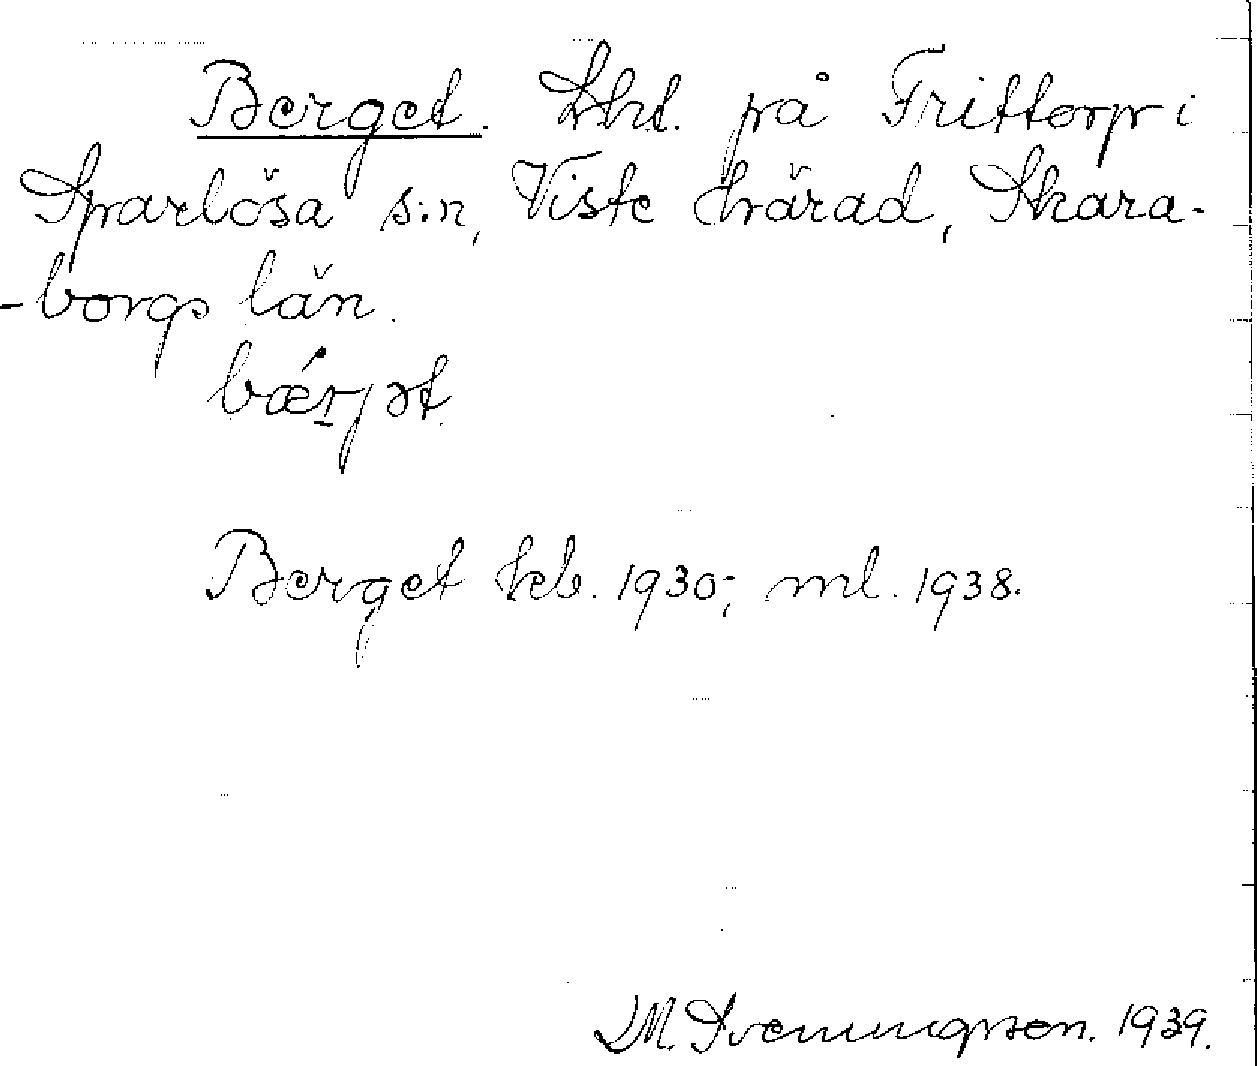 Berget. Lht. på Frittorp i
Sparlösa s:n, Viste härad, Skara-
-borgs län.
bǽrjət
Berget kb. 1930; ml. 1938.
M. Sveningsson. 1939.